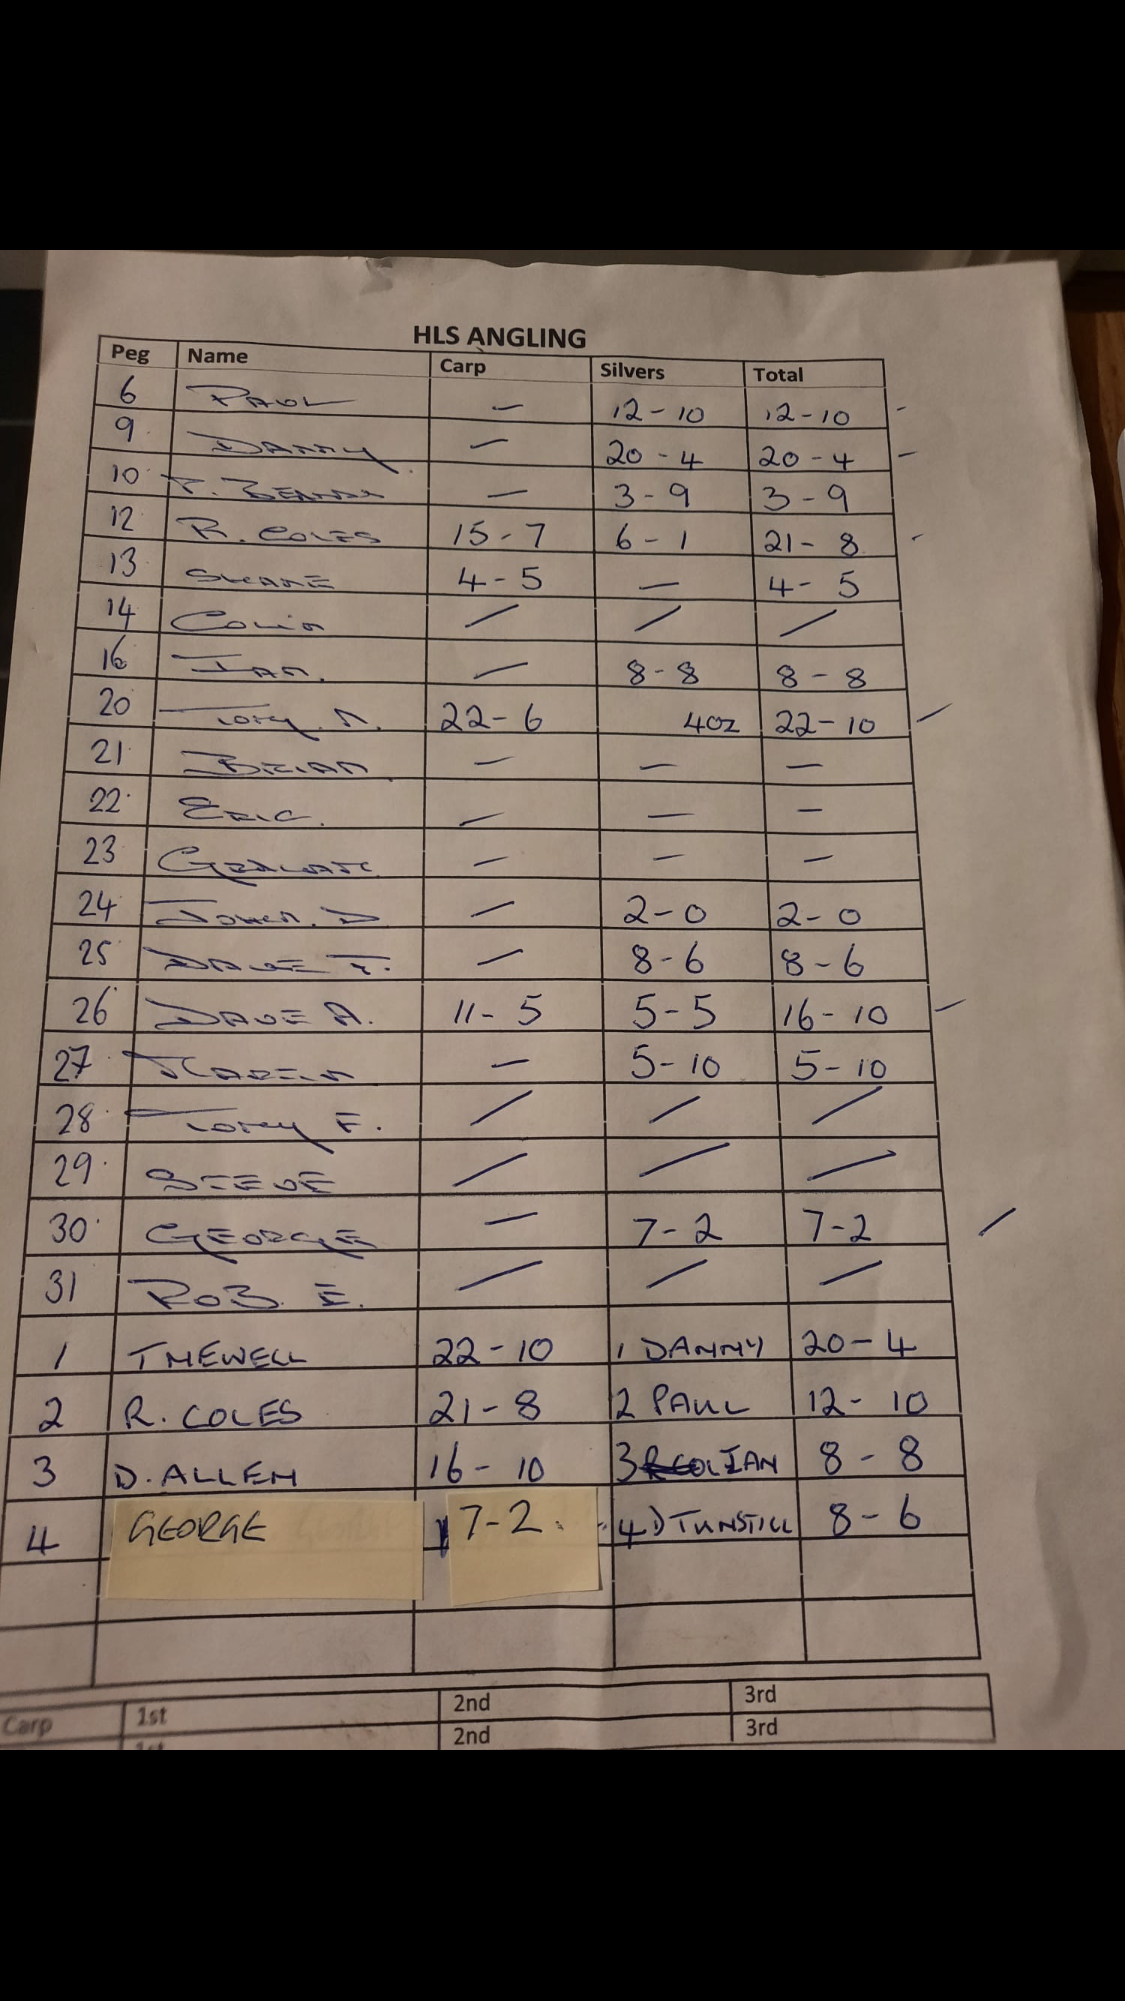 HLS ANGLING
Peg Name Carp Silvers Total
6 PAUL — 12-10 12-10 -
9 DANNY — 20-4 20-4 -
10 — 3-9 3-9
12 R. COLES 15-7 6-1 21-8 -
13 SHANE 4-5 — 4-5
14 Colin / / /
16 IAN. — 8-8 8-8
20 Tony N. 22-6 4oz 22-10 /
21 BRIAN — — —
22 ERIC. — — —
23 — — —
24 D — 2-0 2-0
25 DAVE T. — 8-6 8-6
26 DAVE A. 11-5 5-5 16-10 /
27 — 5-10 5-10
28 Tony F. / / /
29 STEVE / / /
30 GEORGE — 7-2 7-2 /
31 ROB. E. / / /
1 TNEWELL 22-10 1 DANNY 20-4
2 R. COLES 21-8 2 PAUL 12-10
3 D. ALLEN 16-10 3 IAN 8-8
4 GEORGE 7-2 4 D TUNSTILL 8-6
Carp 1st 2nd 3rd
1st 2nd 3rd